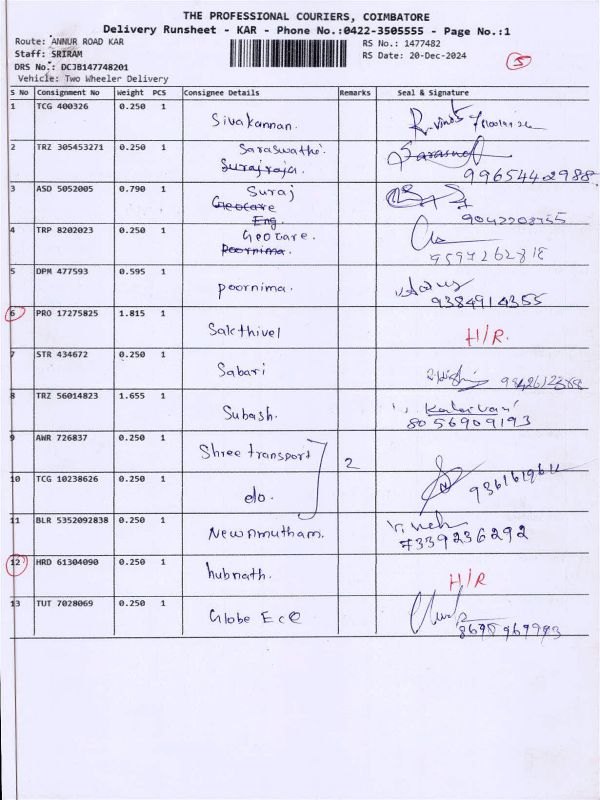 THE PROFESSIONAL COURIERS, COIMBATORE
Delivery Runsheet - KAR - Phone No.:0422-3505555 - Page No.:1
Route: ANNUR ROAD KAR RS No.: 1477482
Staff: SRIRAM RS Date: 20-Dec-2024 5
DRS No.: DCJB147748201
Vehicle: Two Wheeler Delivery
S No Consignment No Weight PCS Consignee Details Remarks Seal & Signature
1 TCG 400326 0.250 1 Sivakannan.
2 TRZ 305453271 0.250 1 Saraswathi.
Surajraja. 9965442988
3 ASD 5052005 0.790 1 Suraj
Geocare
Eng.
4 TRP 8202023 0.250 1 Geocare.
Poornima.
5 DPM 477593 0.595 1 poornima.
9384914355
6 PRO 17275825 1.815 1 Sakthivel H/R.
7 STR 434672 0.250 1 Sabari
8 TRZ 56014823 1.655 1 Subash. Kalaivani
8056909193
9 AWR 726837 0.250 1 Shree transport 2
10 TCG 10238626 0.250 1 do.
11 BLR 5352092838 0.250 1
7339236292
12 HRD 61304090 0.250 1 hubnath. H/R
13 TUT 7028069 0.250 1 Globe